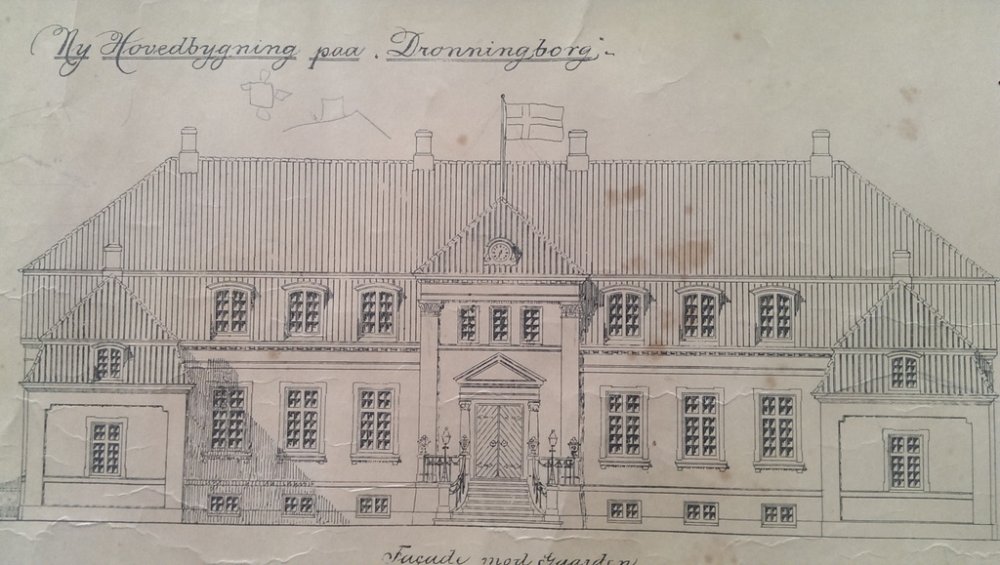 Ny Hovedbygning paa . Dronningborg .-
Façade mod Gaarden